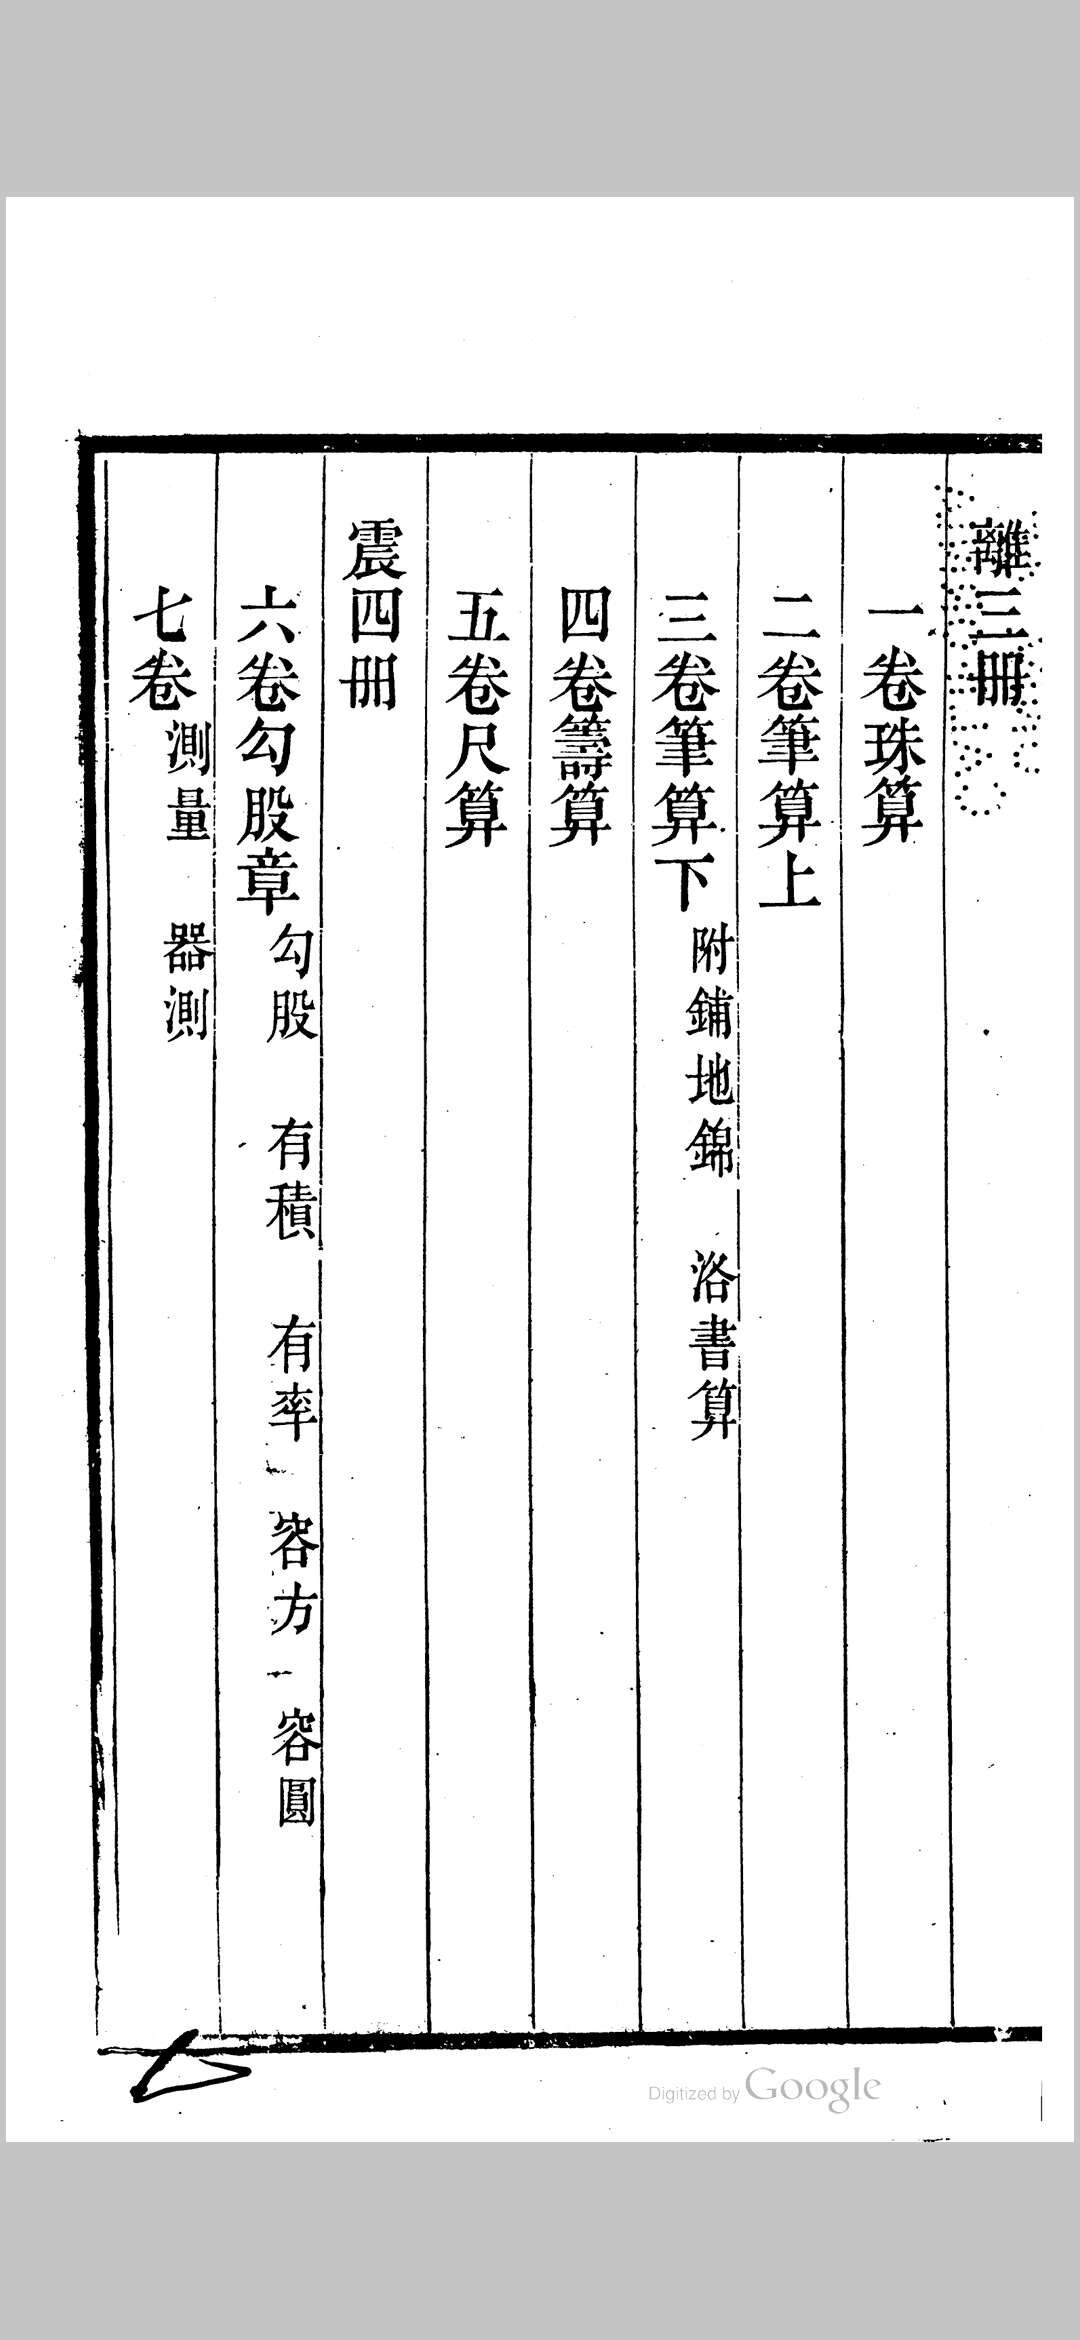 離三冊
一卷珠算
二卷筆算上
三卷筆算下 附鋪地錦 洛書算
四卷籌算
五卷尺算
震四冊
六卷勾股章 勾股 有積 有率 容方 容圓
七卷 測量 器測
Digitized by Google